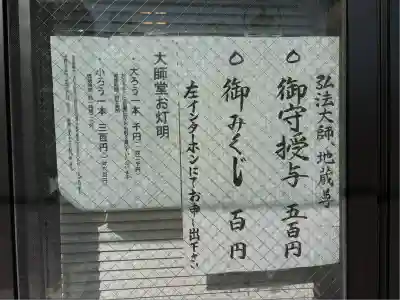 弘法大師、地蔵尊
○ 御守授与 五百円
○ 御みくじ 百円
左インターホンにてお申し出下さい
大師堂お灯明
・大ろう一本 千円
・小ろう一本 三百円